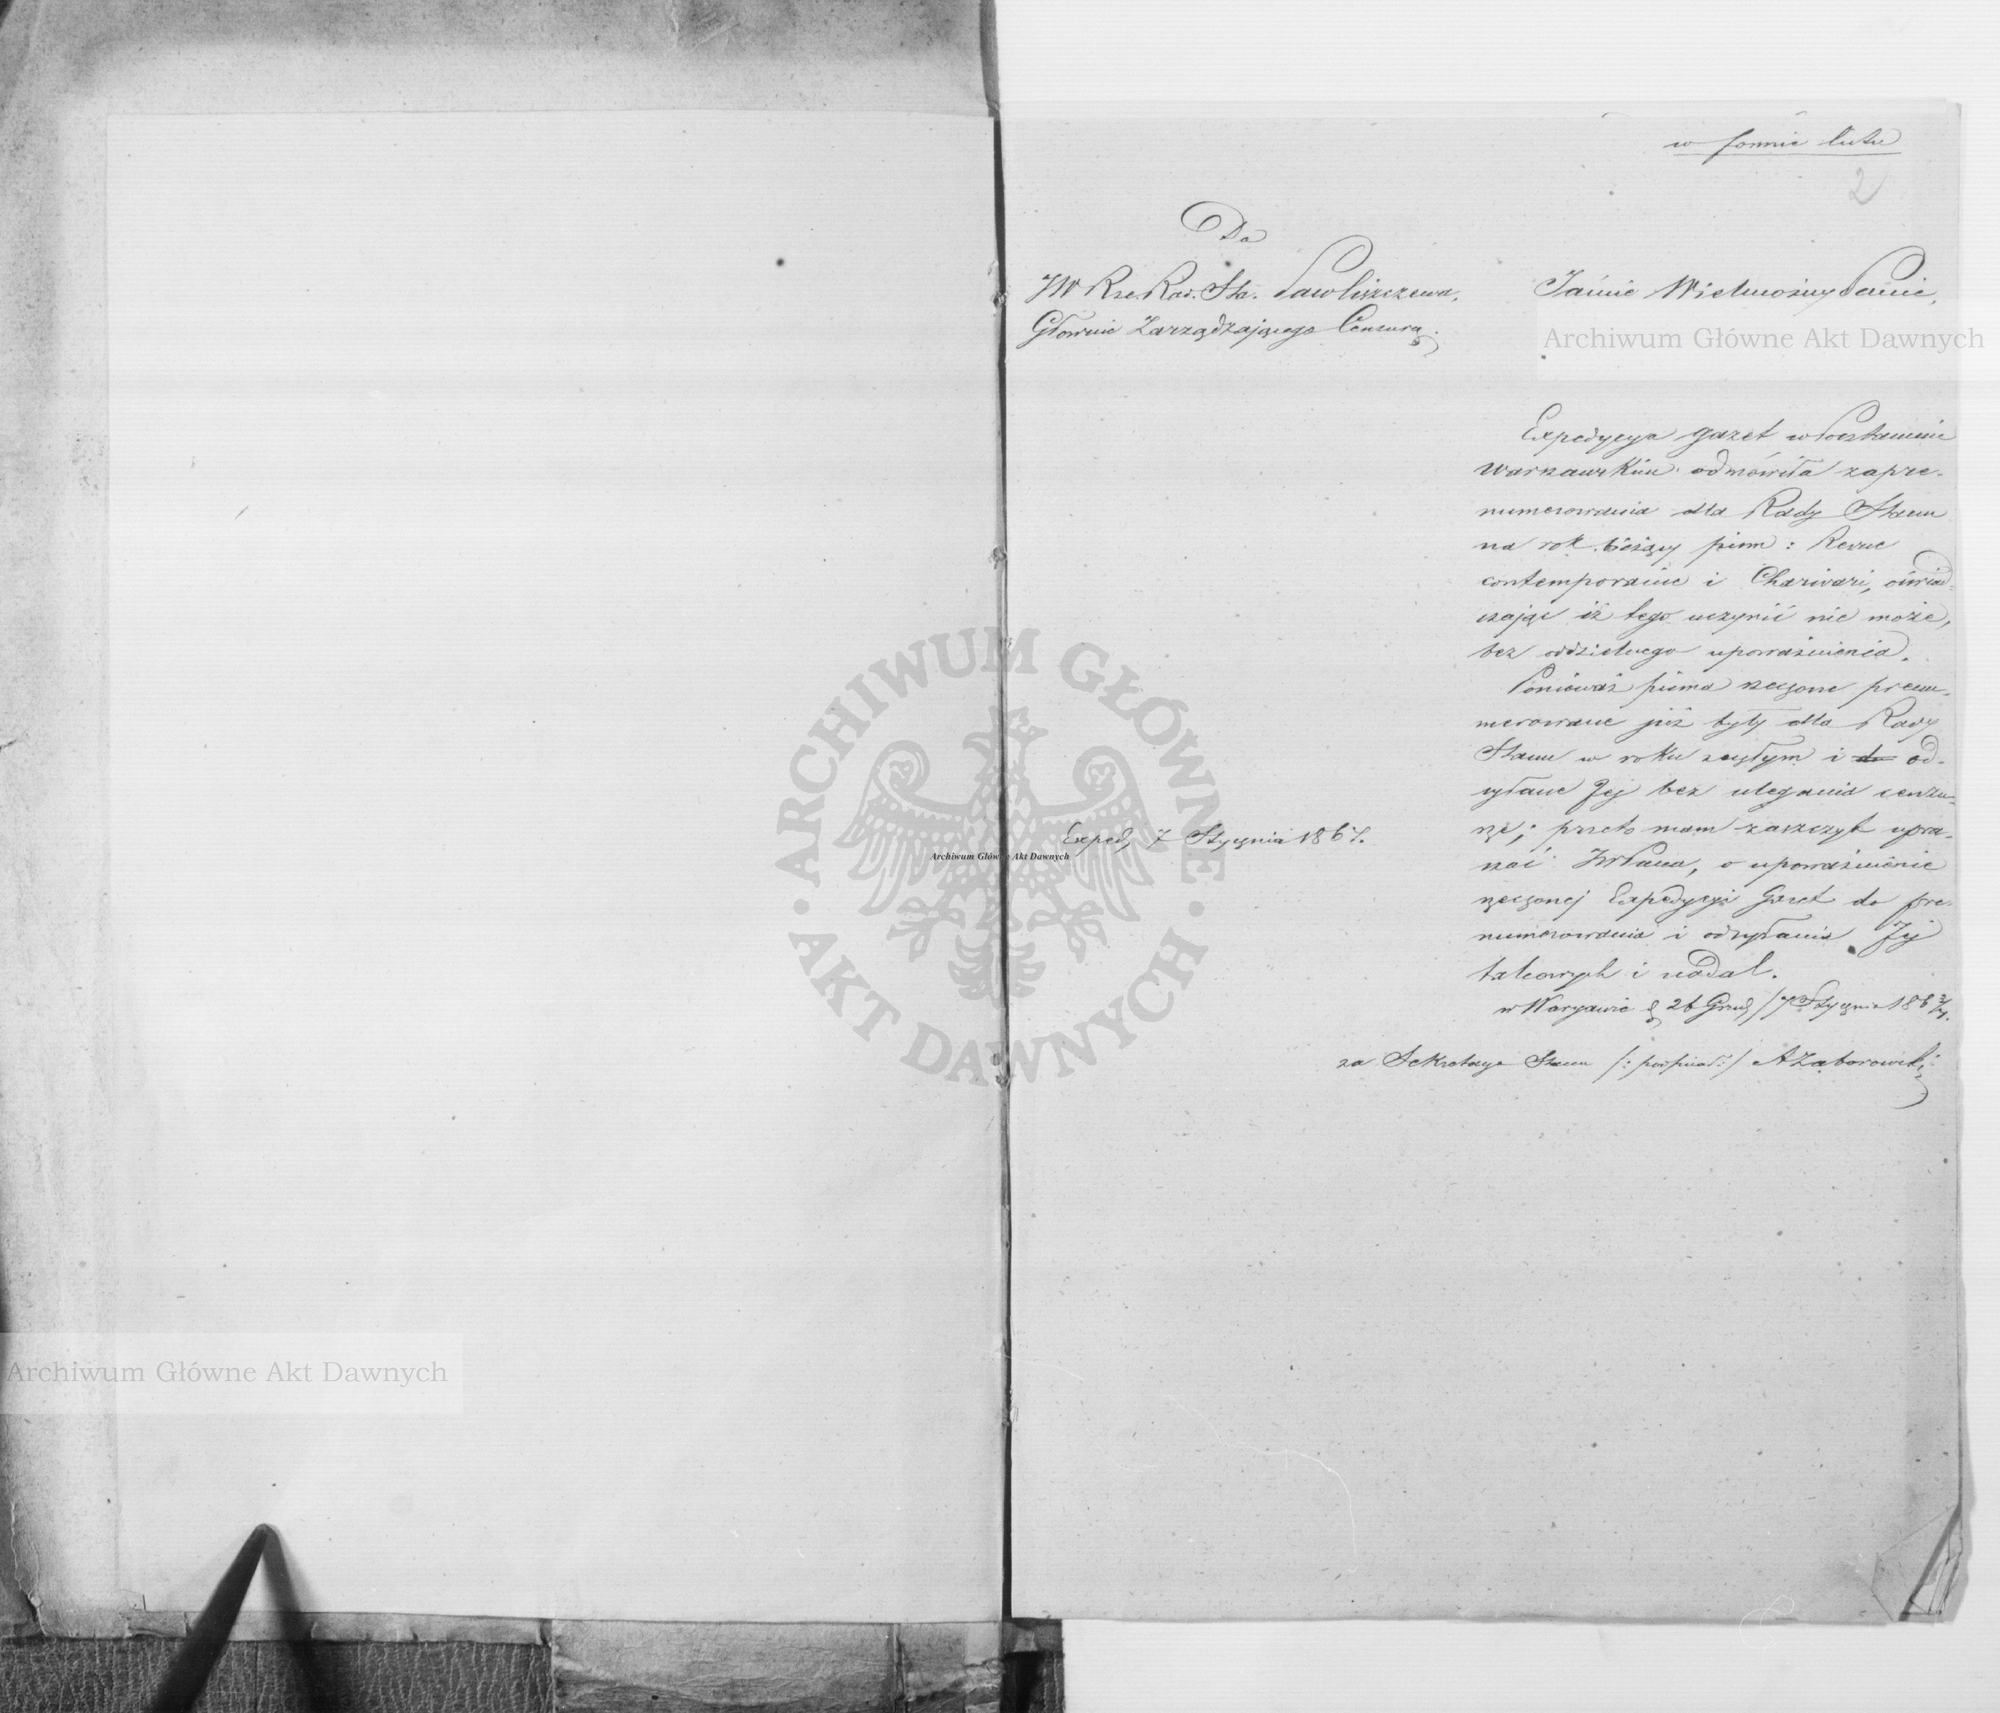 w formie listu
2
Do
JW Rze. Rad. Sta. Pawliszczewa,
Głównie Zarządzającego Cenzurą.
Jaśnie Wielmożny Panie,
Archiwum Główne Akt Dawnych
Expedycya gazet w Pocztamcie
Warszawskim odmówiła zapre-
numerowania dla Rady Stanu
na rok bieżący pism: Revue
contemporaine i Charivari, oświad-
czając iż tego uczynić nie może,
bez oddzielnego upoważnienia.
Ponieważ pisma rzeczone prenu-
merowane już były dla Rady
Stanu w roku zeszłym i do od-
syłane Jej bez ulegania cenzu-
rze; przeto mam zaszczyt upra-
szać JWPana, o upoważnienie
rzeczonej Expedycyi Gazet do pre-
numerowania i odsyłania Jej
takowych i nadal.
w Warszawie d 26 Grud/7 Stycznia 186 3/4.
za Sekretarza Stanu /: podpisał :/ A Zaborowski
Exped, 7 Stycznia 1864.
ARCHIWUM GŁÓWNE
AKT DAWNYCH
Archiwum Główne Akt Dawnych
Archiwum Główne Akt Dawnych